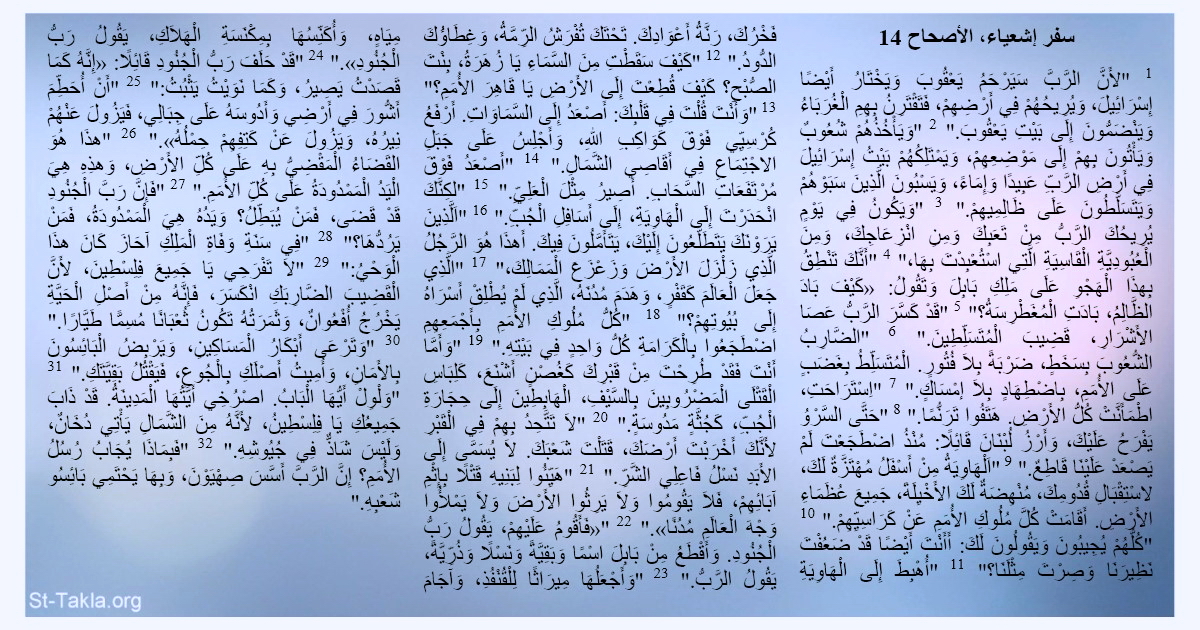 سفر إشعياء، الأصحاح 14
1 "لأَنَّ الرَّبَّ سَيَرْحَمُ يَعْقُوبَ وَيَخْتَارُ أَيْضًا
إِسْرَائِيلَ، وَيُرِيحُهُمْ فِي أَرْضِهِمْ، فَتَقْتَرِنُ بِهِمِ الْغُرَبَاءُ
وَيَنْضَمُّونَ إِلَى بَيْتِ يَعْقُوبَ." 2 "وَيَأْخُذُهُمْ شُعُوبٌ
وَيَأْتُونَ بِهِمْ إِلَى مَوْضِعِهِمْ، وَيَمْتَلِكُهُمْ بَيْتُ إِسْرَائِيلَ
فِي أَرْضِ الرَّبِّ عَبِيدًا وَإِمَاءً، وَيَسْبُونَ الَّذِينَ سَبَوْهُمْ
وَيَتَسَلَّطُونَ عَلَى ظَالِمِيهِمْ." 3 "وَيَكُونُ فِي يَوْمٍ
يُرِيحُكَ الرَّبُّ مِنْ تَعَبِكَ وَمِنِ انْزِعَاجِكَ، وَمِنَ
الْعُبُودِيَّةِ الْقَاسِيَةِ الَّتِي اسْتُعْبِدْتَ بِهَا،" 4 "أَنَّكَ تَنْطِقُ
بِهذَا الْهَجْوِ عَلَى مَلِكِ بَابِلَ وَتَقُولُ: «كَيْفَ بَادَ
الظَّالِمُ، بَادَتِ الْمُغَطْرِسَةُ؟" 5 "قَدْ كَسَّرَ الرَّبُّ عَصَا
الأَشْرَارِ، قَضِيبَ الْمُتَسَلِّطِينَ." 6 "الضَّارِبُ
الشُّعُوبَ بِسَخَطٍ، ضَرْبَةً بِلاَ فُتُورٍ. الْمُتَسَلِّطُ بِغَضَبٍ
عَلَى الأُمَمِ، بِاضْطِهَادٍ بِلاَ إِمْسَاكٍ." 7 "اِسْتَرَاحَتِ،
اطْمَأَنَّتْ كُلُّ الأَرْضِ. هَتَفُوا تَرَنُّمًا." 8 "حَتَّى السَّرْوُ
يَفْرَحُ عَلَيْكَ، وَأَرْزُ لُبْنَانَ قَائِلًا: مُنْذُ اضْطَجَعْتَ لَمْ
يَصْعَدْ عَلَيْنَا قَاطِعٌ." 9 "اَلْهَاوِيَةُ مِنْ أَسْفَلُ مُهْتَزَّةٌ لَكَ،
لاسْتِقْبَالِ قُدُومِكَ، مُنْهِضَةٌ لَكَ الأَخْيِلَةَ، جَمِيعَ عُظَمَاءِ
الأَرْضِ. أَقَامَتْ كُلَّ مُلُوكِ الأُمَمِ عَنْ كَرَاسِيِّهِمْ." 10
"كُلُّهُمْ يُجِيبُونَ وَيَقُولُونَ لَكَ: أَأَنْتَ أَيْضًا قَدْ ضَعُفْتَ
نَظِيرَنَا وَصِرْتَ مِثْلَنَا؟" 11 "أُهْبِطَ إِلَى الْهَاوِيَةِ
فَخْرُكَ، رَنَّةُ أَعْوَادِكَ. تَحْتَكَ تُفْرَشُ الرِّمَّةُ، وَغِطَاؤُكَ
الدُّودُ." 12 "كَيْفَ سَقَطْتِ مِنَ السَّمَاءِ يَا زُهَرَةُ، بِنْتَ
الصُّبْحِ؟ كَيْفَ قُطِعْتَ إِلَى الأَرْضِ يَا قَاهِرَ الأُمَمِ؟"
13 "وَأَنْتَ قُلْتَ فِي قَلْبِكَ: أَصْعَدُ إِلَى السَّمَاوَاتِ. أَرْفَعُ
كُرْسِيِّي فَوْقَ كَوَاكِبِ اللهِ، وَأَجْلِسُ عَلَى جَبَلِ
الاجْتِمَاعِ فِي أَقَاصِي الشَّمَالِ." 14 "أَصْعَدُ فَوْقَ
مُرْتَفَعَاتِ السَّحَابِ. أَصِيرُ مِثْلَ الْعَلِيِّ." 15 "لكِنَّكَ
انْحَدَرْتَ إِلَى الْهَاوِيَةِ، إِلَى أَسَافِلِ الْجُبِّ." 16 "اَلَّذِينَ
يَرَوْنَكَ يَتَطَلَّعُونَ إِلَيْكَ، يَتَأَمَّلُونَ فِيكَ. أَهذَا هُوَ الرَّجُلُ
الَّذِي زَلْزَلَ الأَرْضَ وَزَعْزَعَ الْمَمَالِكَ،" 17 "الَّذِي
جَعَلَ الْعَالَمَ كَقَفْرٍ، وَهَدَمَ مُدُنَهُ، الَّذِي لَمْ يُطْلِقْ أَسْرَاهُ
إِلَى بُيُوتِهِمْ؟" 18 "كُلُّ مُلُوكِ الأُمَمِ بِأَجْمَعِهِمِ
اضْطَجَعُوا بِالْكَرَامَةِ كُلُّ وَاحِدٍ فِي بَيْتِهِ." 19 "وَأَمَّا
أَنْتَ فَقَدْ طُرِحْتَ مِنْ قَبْرِكَ كَغُصْنٍ أَشْنَعَ، كَلِبَاسِ
الْقَتْلَى الْمَضْرُوبِينَ بِالسَّيْفِ، الْهَابِطِينَ إِلَى حِجَارَةِ
الْجُبِّ، كَجُثَّةٍ مَدُوسَةٍ." 20 "لاَ تَتَّحِدُ بِهِمْ فِي الْقَبْرِ
لأَنَّكَ أَخْرَبْتَ أَرْضَكَ، قَتَلْتَ شَعْبَكَ. لاَ يُسَمَّى إِلَى
الأَبَدِ نَسْلُ فَاعِلِي الشَّرِّ." 21 "هَيِّئُوا لِبَنِيهِ قَتْلًا بِإِثْمِ
آبَائِهِمْ، فَلاَ يَقُومُوا وَلاَ يَرِثُوا الأَرْضَ وَلاَ يَمْلأُوا
وَجْهَ الْعَالَمِ مُدُنًا»." 22 "«فَأَقُومُ عَلَيْهِمْ، يَقُولُ رَبُّ
الْجُنُودِ. وَأَقْطَعُ مِنْ بَابِلَ اسْمًا وَبَقِيَّةً وَنَسْلًا وَذُرِّيَّةً،
يَقُولُ الرَّبُّ." 23 "وَأَجْعَلُهَا مِيرَاثًا لِلْقُنْفُذِ، وَآجَامَ
مِيَاهٍ، وَأُكَنِّسُهَا بِمِكْنَسَةِ الْهَلاَكِ، يَقُولُ رَبُّ
الْجُنُودِ»." 24 "قَدْ حَلَفَ رَبُّ الْجُنُودِ قَائِلًا: «إِنَّهُ كَمَا
قَصَدْتُ يَصِيرُ، وَكَمَا نَوَيْتُ يَثْبُتُ:" 25 "أَنْ أُحَطِّمَ
أَشُّورَ فِي أَرْضِي وَأَدُوسَهُ عَلَى جِبَالِي، فَيَزُولَ عَنْهُمْ
نِيرُهُ، وَيَزُولَ عَنْ كَتِفِهِمْ حِمْلُهُ»." 26 "هذَا هُوَ
الْقَضَاءُ الْمَقْضِيُّ بِهِ عَلَى كُلِّ الأَرْضِ، وَهذِهِ هِيَ
الْيَدُ الْمَمْدُودَةُ عَلَى كُلِّ الأُمَمِ." 27 "فَإِنَّ رَبَّ الْجُنُودِ
قَدْ قَضَى، فَمَنْ يُبَطِّلُ؟ وَيَدُهُ هِيَ الْمَمْدُودَةُ، فَمَنْ
يَرُدُّهَا؟" 28 "فِي سَنَةِ وَفَاةِ الْمَلِكِ آحَازَ كَانَ هذَا
الْوَحْيُ:" 29 "لاَ تَفْرَحِي يَا جَمِيعَ فِلِسْطِينَ، لأَنَّ
الْقَضِيبَ الضَّارِبَكِ انْكَسَرَ، فَإِنَّهُ مِنْ أَصْلِ الْحَيَّةِ
يَخْرُجُ أُفْعُوانٌ، وَثَمَرَتُهُ تَكُونُ ثُعْبَانًا مُسِمًّا طَيَّارًا."
30 "وَتَرْعَى أَبْكَارُ الْمَسَاكِينِ، وَيَرْبِضُ الْبَائِسُونَ
بِالأَمَانِ، وَأُمِيتُ أَصْلَكِ بِالْجُوعِ، فَيَقْتُلُ بَقِيَّتَكِ." 31
"وَلْوِلْ أَيُّهَا الْبَابُ. اصْرُخِي أَيَّتُهَا الْمَدِينَةُ. قَدْ ذَابَ
جَمِيعُكِ يَا فِلِسْطِينُ، لأَنَّهُ مِنَ الشَّمَالِ يَأْتِي دُخَانٌ،
وَلَيْسَ شَاذٌّ فِي جُيُوشِهِ." 32 "فَبِمَاذَا يُجَابُ رُسُلُ
الأُمَمِ؟ إِنَّ الرَّبَّ أَسَّسَ صِهْيَوْنَ، وَبِهَا يَحْتَمِي بَائِسُو
شَعْبِهِ."
St-Takla.org